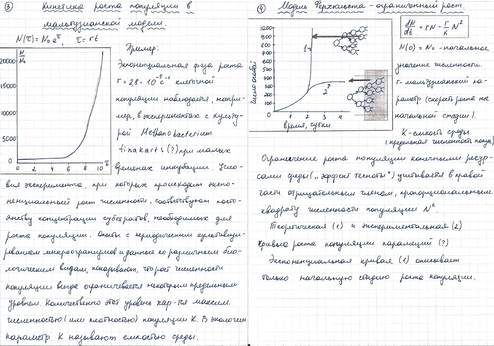 ③ Кинетика роста популяции в
мальтузианской модели.
N(τ)=N₀e^τ, τ=rt
N
N₀
20000
15000
10000
5000
0
0 2 4 6 8 10 τ
Пример:
Экспоненциальная фаза роста
r = 2,8·10⁻⁵ c⁻¹ клеточной
популяции наблюдается, напри-
мер, в экспериментах с культу-
рой Methanobacterium
(?) при малых
временах инкубации. Усло-
вия эксперимента, при которых происходит экспо-
ненциальный рост численности, соответствуют посто-
янству концентрации субстратов, необходимых для
роста популяции. Опыты с периодическим культивиро-
ванием микроорганизмов и данные по различным био-
логическим видам, показывают, что рост численности
популяции всегда ограничивается некоторым предельным
уровнем. Количественно этот уровень хар-тся максим.
численностью (или плотностью) популяции K. В экологии
параметр K называют емкостью среды.
④ Модель Ферхюльста - ограниченный рост.
dN/dt = rN - r/K N²
число особей
1
2
0 1 2 3 4
время, сутки
N(0) = N₀ - начальное
значение численности.
r - мальтузианский па-
раметр (скорость роста на
начальной стадии).
K - емкость среды
(предельная численность попул)
Ограничение роста популяции конечными ресур-
сами среды („эффект тесноты") учитывается в правой
части отрицательным членом, пропорциональным
квадрату численности популяции N².
Теоретическая (1) и экспериментальная (2)
кривая роста популяции парамеций (?)
Экспоненциальная кривая (1) описывает
только начальную стадию роста популяции.